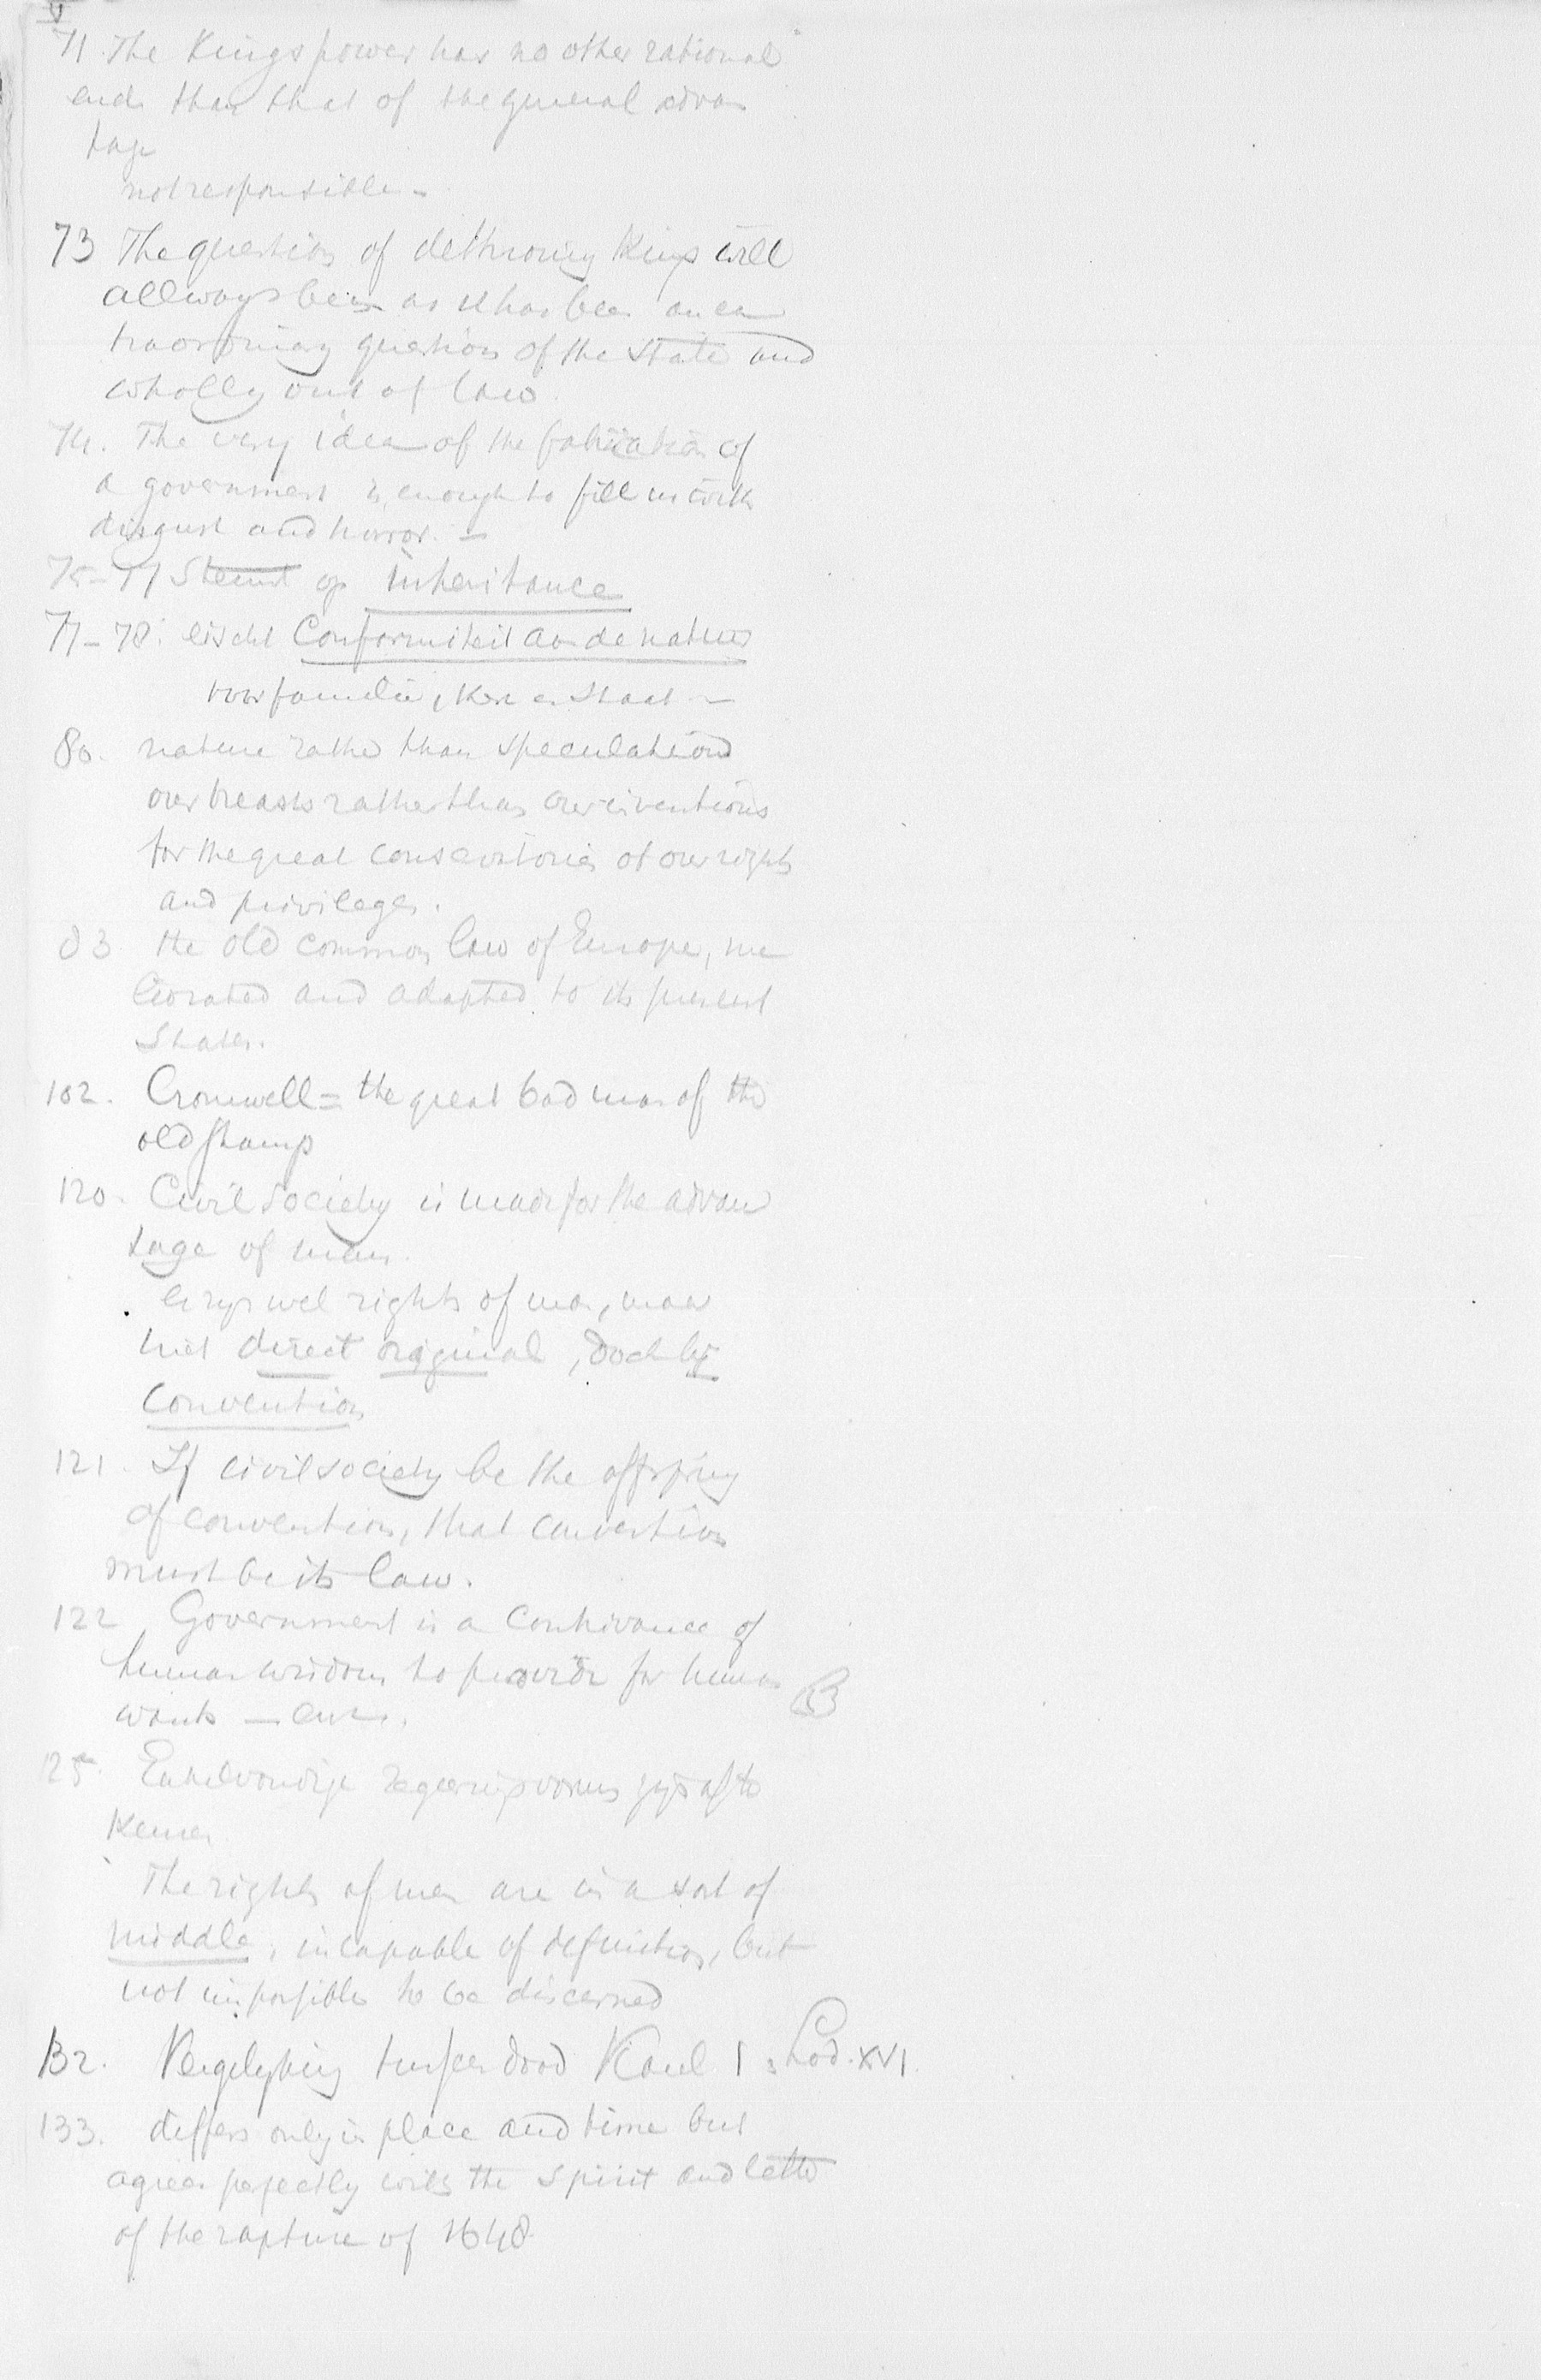 71. The Kings power has no other rational
ends than that of the general advan
tage
not responsible -
73 The question of dethroning Kings will
allways be as it has been an ex
traordinary question of the State and
wholly out of law.
74. The very idea of the fabrication of
a government is enough to fill us with
disgust and horror. -
75-77 Steunt op inheritance
77-78: eischt Conformiteit aan de natuur
voor familie, Kerk en Staat -
80. nature rather than speculations
our breasts rather than our inventions
for the great conservatories of our rights
and privileges.
83 the old common law of Europe, me
liorated and adapted to its present
State.
102. Cromwell = the great bad man of the
old stamp
120. Civil Society is made for the advan
tage of man.
er zijn wel rights of man, maar
niet direct original, doch by
Convention
121. If civil society be the offspring
of convention, that convention
must be its law.
122 Government is a contrivance of
human wisdom to provide for human
B
wants - enz.
125. Eenvoudige regeeringsvormen zijn af te
keuren
The rights of men are in a sort of
middle, incapable of definition, but
not impossible to be discerned
132. Vergelyking tusschen dood Karel I & Lod. XVI.
133. differs only in place and time but
agrees perfectly with the spirit and letter
of the rapture of 1648